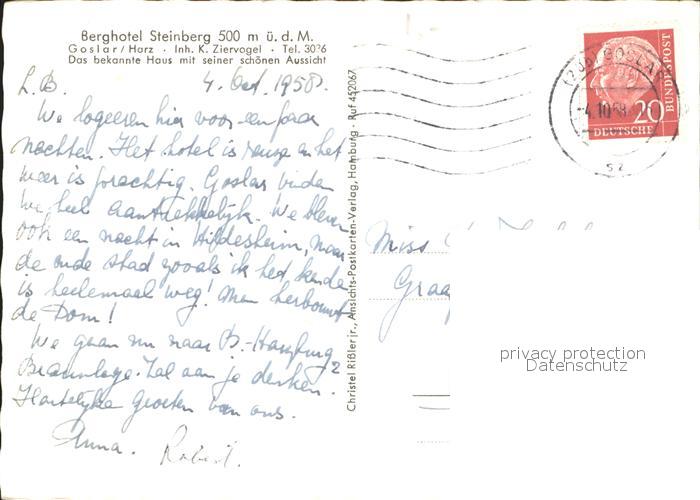 Berghotel Steinberg 500 m ü. d. M.
Goslar/Harz · Inh. K. Ziervogel · Tel. 3036
Das bekannte Haus mit seiner schönen Aussicht
L.B. 4. Oct. 1958.
We logeeren hier voor een paar
nachten. Het hotel is en het
weer is prachtig. Goslar vinden
we heel aantrekkelijk. We bleven
ook een nacht in Hildesheim, maar
de oude stad zooals ik het kende
is heelemaal weg! Men herbouwt
de Dom!
We gaan nu naar B.-Harzburg
Braunlage. Zal aan je denken.
Hartelijke groeten van ons.
Anna. Robert.
Christel Rißler jr., Ansichts-Postkarten-Verlag, Hamburg · Ruf 452067
GOSLAR
-4.10.58
20
DEUTSCHE
BUNDESPOST
Miss
privacy protection
Datenschutz